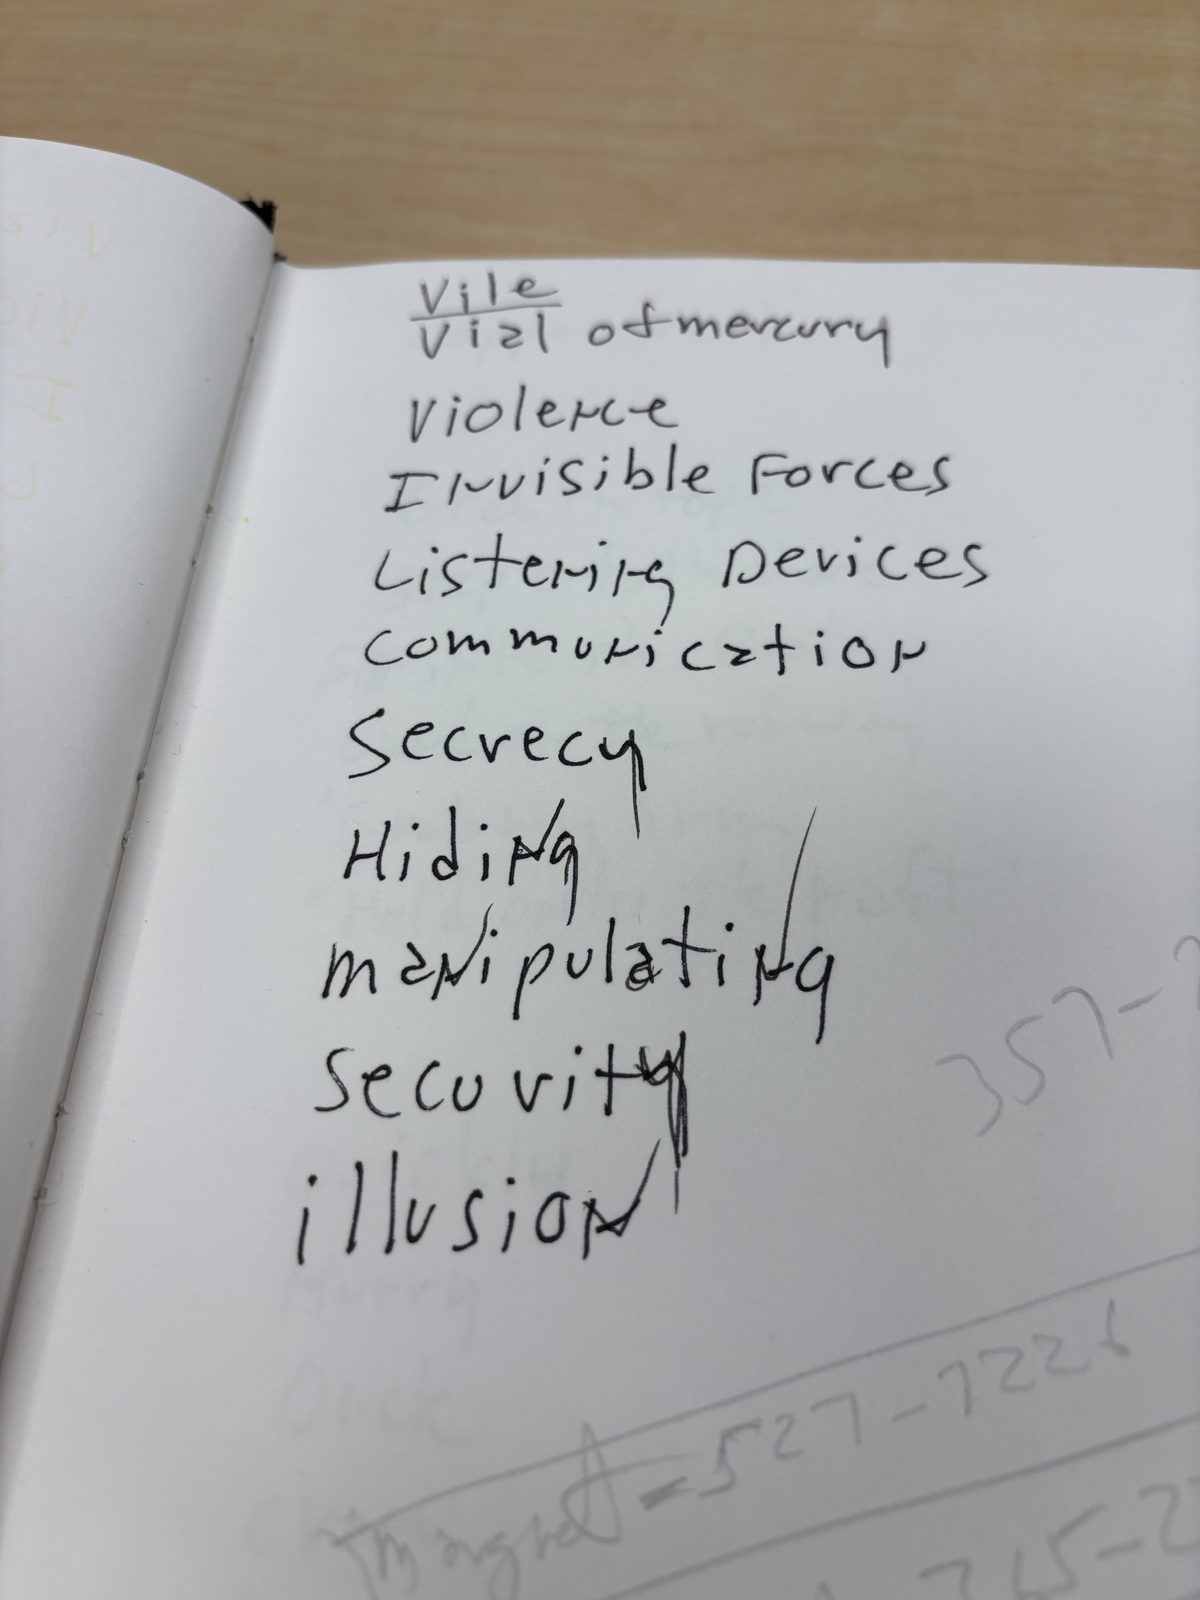 Vile
Vial of mercury
Violence
Invisible Forces
Listening Devices
Communication
Secrecy
Hiding
manipulating
Security
illusion
357-
= 527-7226